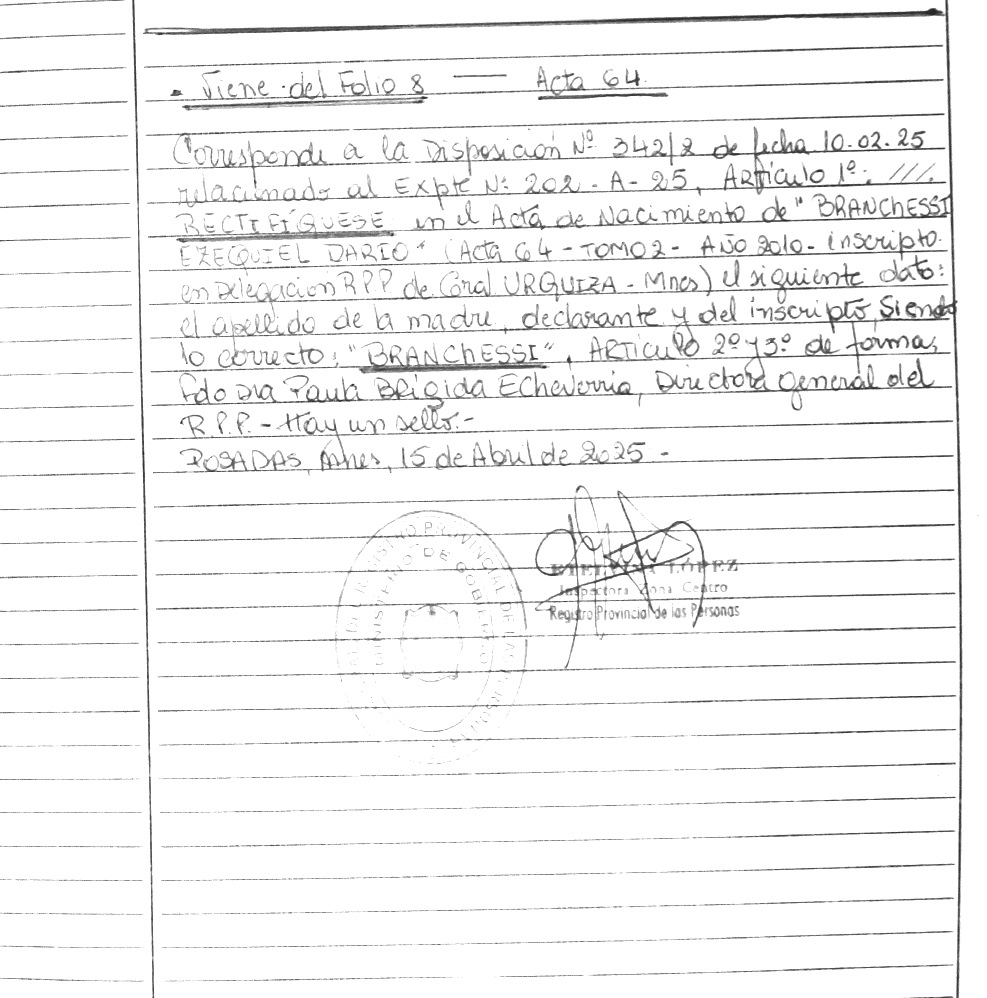 - Viene del Folio 8 —— Acta 64.
Corresponde a la Disposición Nº 342/2 de fecha 10.02.25
relacionado al Expte Nº: 202 - A - 25, Artículo 1º: ////.
RECTIFÍQUESE en el Acta de Nacimiento de "BRANCHESSI
EZEQUIEL DARIO" (Acta 64 - TOMO 2 - AÑO 2010 - inscripto
en Delegación RPP de Gral URQUIZA - Mnes) el siguiente dato:
el apellido de la madre, declarante y del inscripto, siendo
lo correcto: "BRANCHESSI", ARTICULO 2º y 3º de forma,
Fdo Dra Paula Brígida Echeverria, Directora General del
R.P.P. - Hay un sello.-
POSADAS, Mnes, 15 de Abril de 2025 -
REGISTRO PROVINCIAL DE LAS PERSONAS
MINISTERIO DE GOBIERNO
LÓPEZ
Inspectora Zona Centro
Registro Provincial de las Personas